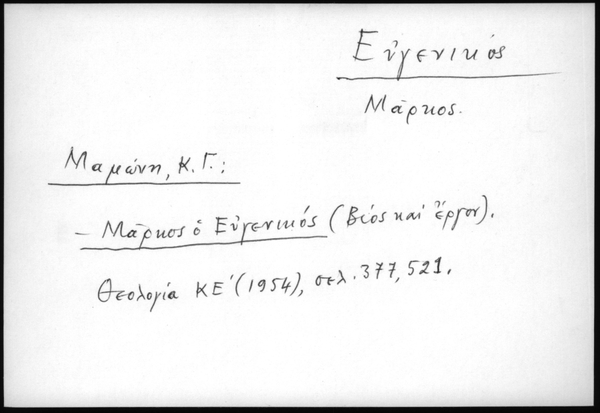 Εὐγενικός
Μᾶρκος.
Μαμώνη, Κ. Γ.:
– Μᾶρκος ὁ Εὐγενικός (Βίος καὶ ἔργον).
Θεολογία ΚΕ΄ (1954), σελ. 377, 521.